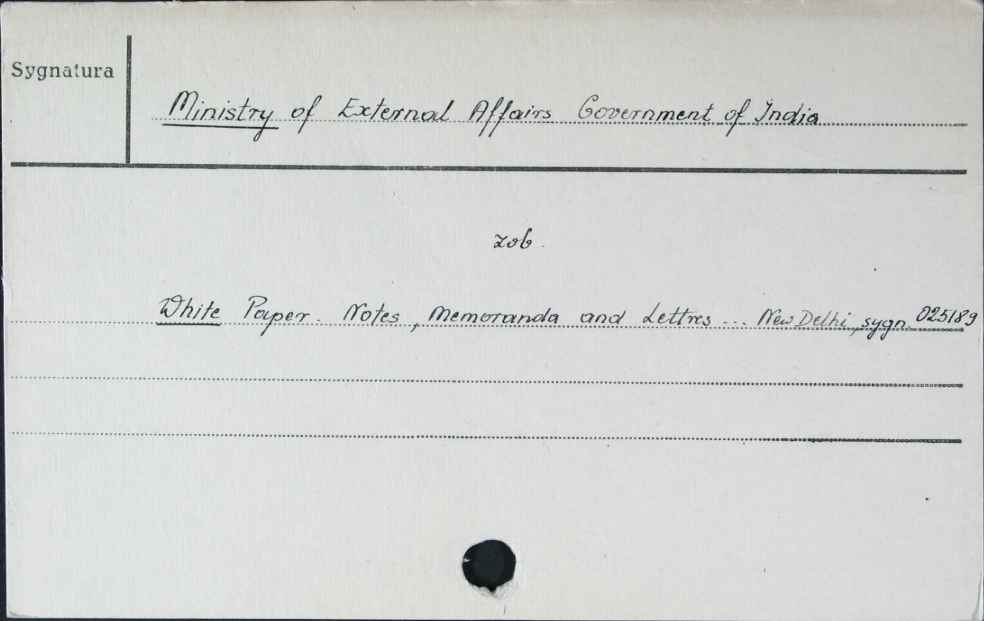 Sygnatura
Ministry of External Affairs Government of India
zob.
White Paper. Notes, Memoranda and Lettres ... New Delhi, sygn. 025189